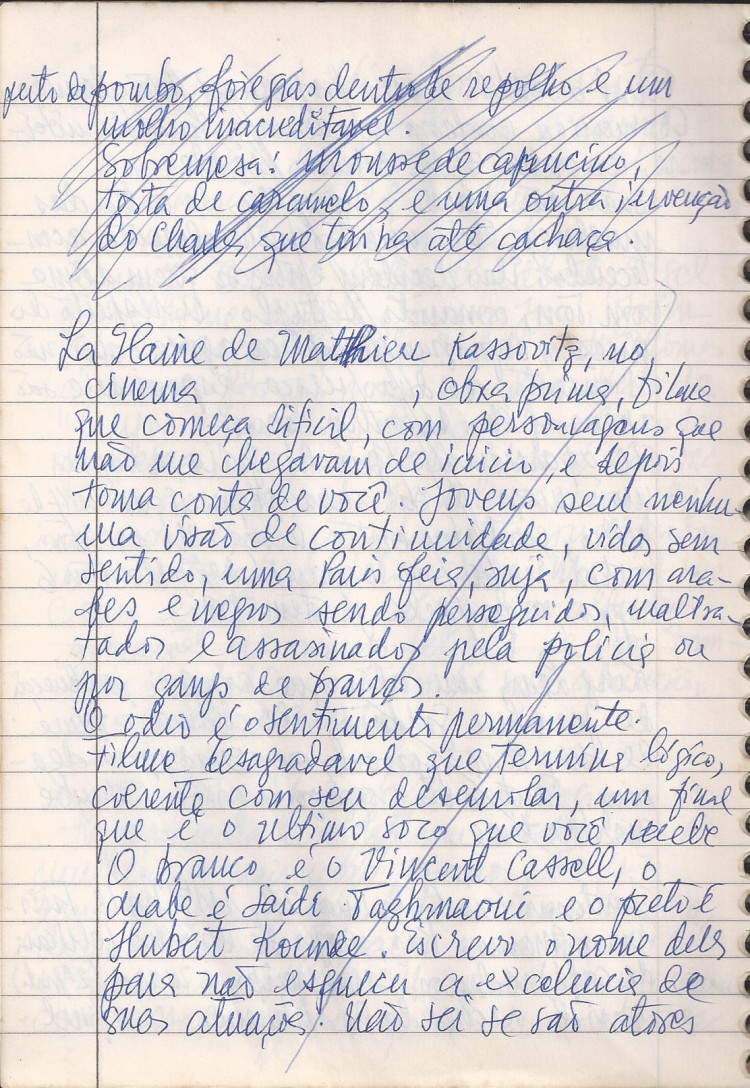 peito de pombo, foie gras dentro de repolho e um
molho inacreditavel
Sobremesa: mousse de capucino,
torta de caramelo, e uma outra invenção
do Charles que tinha até cachaça.
La Haine de Matthieu Kassovitz, no
cinema , obra prima, filme
que começa dificil, com personagens que
não me chegavam de inicio, e depois
toma conta de você. Jovens sem nenhu-
ma visão de continuidade, vidas sem
sentido, uma Paris feia, suja, com ara-
bes e negros sendo perseguidos, maltra-
tados e assasinados pela policia ou
por gangs de brancos
O odio é o sentimento permanente.
Filme desagradavel que termina lógico,
coerente com seu desenrolar, um final
que é o ultimo soco que você recebe
O branco é o Vincent Cassell, o
arabe é Saidi Taghmaoui e o preto é
Hubert Kounde. Escrevo o nome deles
para não esquecer a excelencia de
suas atuações. Não sei se são atores